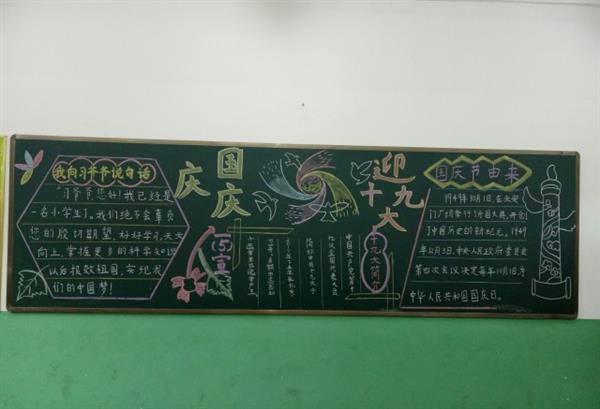 我向习爷爷说句话
"习爷爷您好!我已经是
一名小学生了。我们绝不会辜负
您的殷切期望,好好学习,天天
向上,掌握更多的科学知识
以后报效祖国,实现我
们的中国梦!
庆国庆
迎十九大
(5)宣
十九大简介
中国共产党第十
九次全国代表大会
简称中共十九大于
国庆节由来
1949年10月1日,在天安
门广场举行了开国大典,开创
了中国历史的新纪元。1949
年12月3日,中央人民政府委员会
第四次会议决定每年10月1日为
中华人民共和国国庆日。